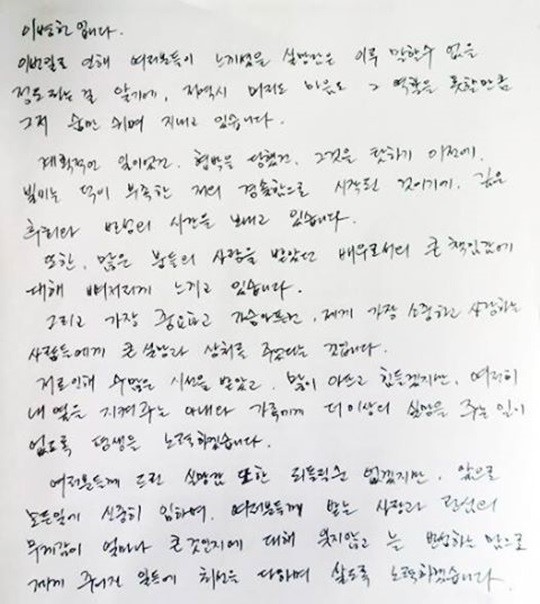 이병헌입니다.
이번일로 인해 여러분들이 느끼셨을 실망감은 이루 말할수 없을
정도라는걸 알기에, 저역시 머리도 마음도 그 역할을 못할만큼
그저 숨만 쉬며 지내고 있습니다.
계획적인 일이었건, 협박을 당했건, 그것을 탓하기 이전에.
빌미는 덕이 부족한 저의 경솔함으로 시작된 것이기에. 깊은
후회와 반성의 시간을 보내고 있습니다.
또한, 많은 분들의 사랑을 받았던 배우로서의 큰 책임감에
대해 뼈저리게 느끼고 있습니다.
그리고 가장 중요하고 가슴아프건, 제게 가장 소중하고 사랑하는
사람들에게 큰 실망과 상처를 주었다는 것입니다.
저로인해 수많은 시선을 받았고, 많이 아프고 힘들겠지만, 여전히
내 옆을 지켜주는 아내와 가족에게 더이상의 실망을 주는일이
없도록 평생을 노력하겠습니다.
여러분들께 드린 실망감 또한 되돌릴순 없겠지만, 앞으로
모든일에 신중히 임하며, 여러분들께 받는 사랑과 관심의
무게감이 얼마나 큰것인지에 대해 잊지않고 늘 반성하는 맘으로
제게 주어진 일들에 최선을 다하며 살도록 노력하겠습니다.